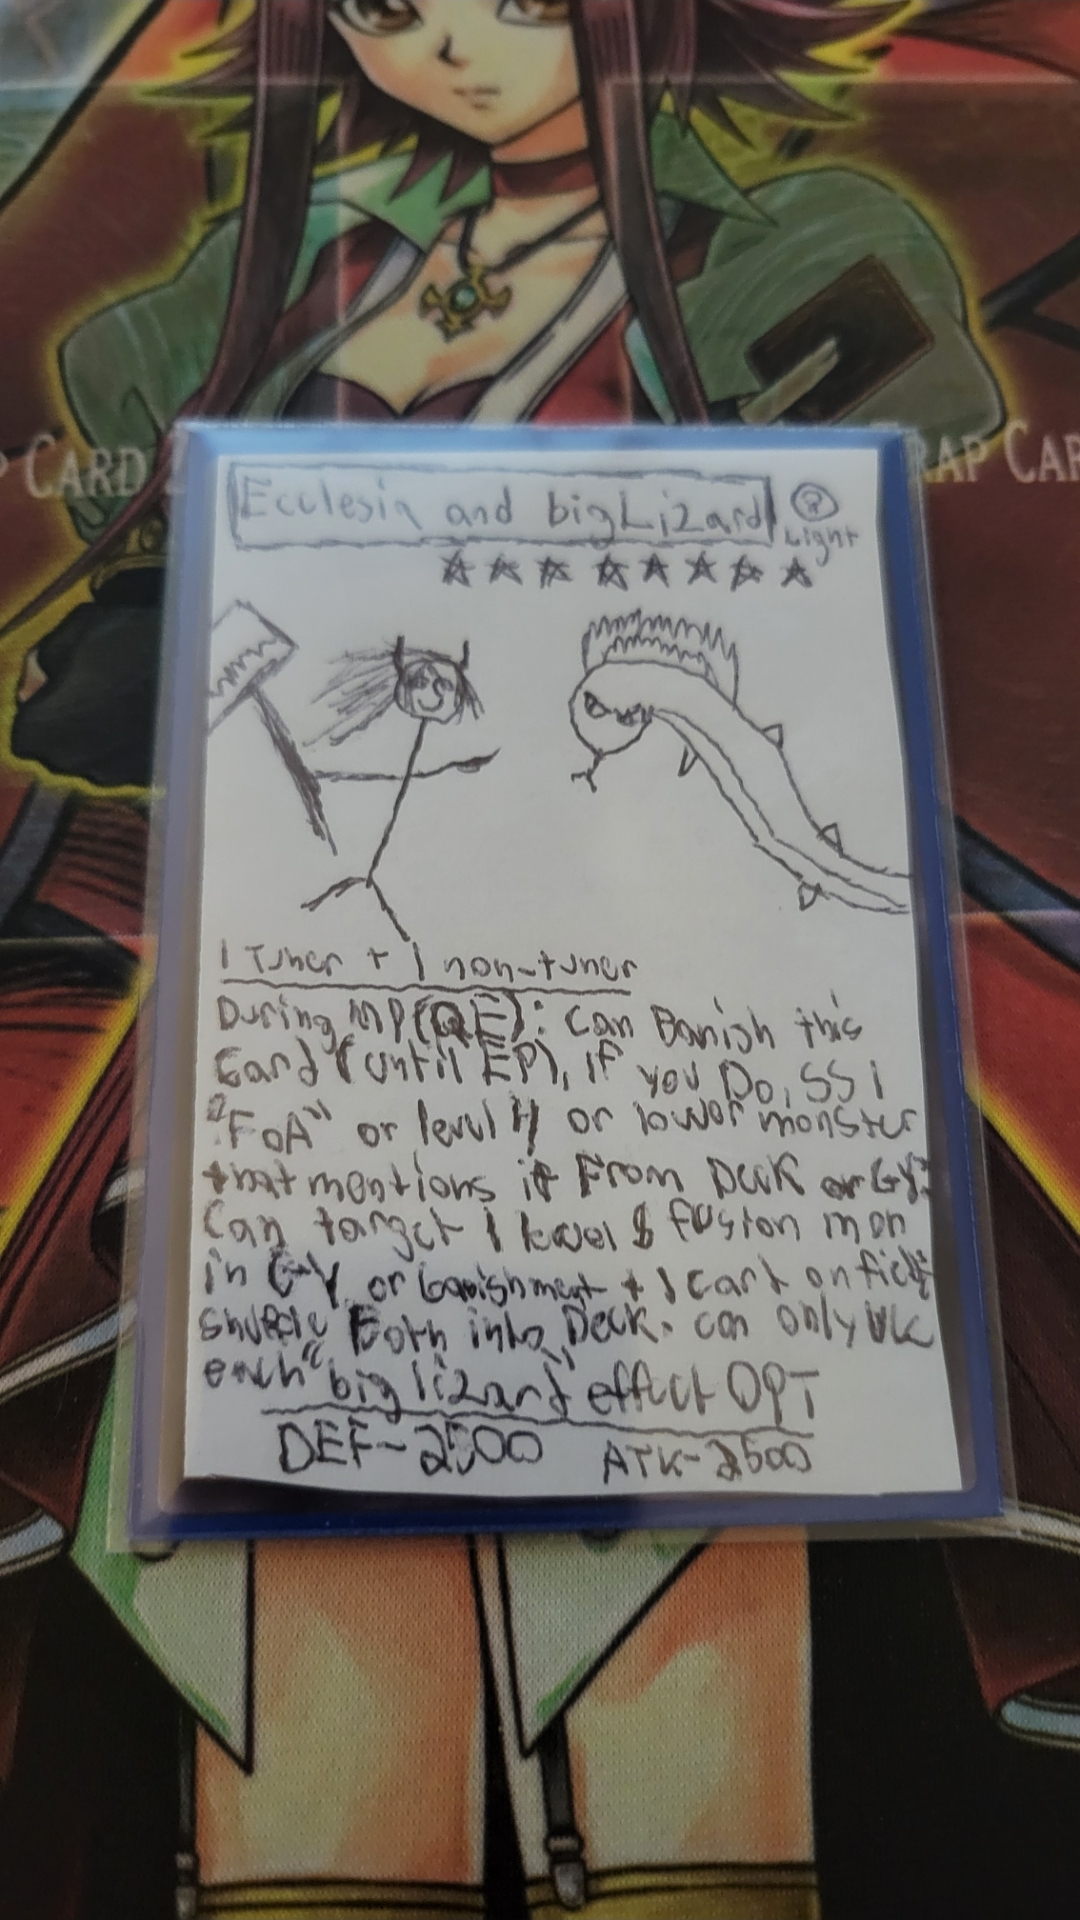 P CARD
RAP CAR
Ecclesia and big Lizard
Light
1 Tuner + 1 non-tuner
During MP(QE): Can Banish this
Card (until EP), if you Do, SS 1
"FoA" or level 4 or lower monster
that mentions it From Deck or GY.
Can target 1 level 8 fusion mon
in GY or banishment + 1 card on field
shuffle Both into Deck. can only use
each "big lizard" effect OPT
DEF-2500 ATK-2500